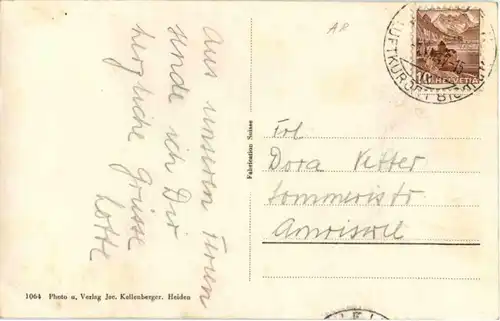 Aus unseren Ferien
sende ich Dir
herzliche Grüsse
Lotte
1064 Photo u. Verlag Jos. Kallenberger. Heiden
Fabrication Suisse
AR
LUFTKURORT
10 HELVETIA
Frl
Dora Vetter
Sommeristr
Amriswil